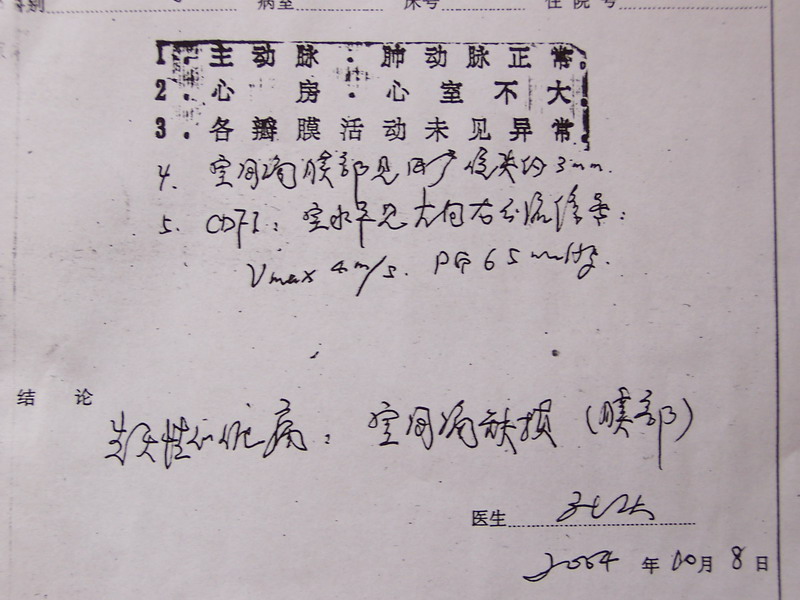 科别 病室 床号 住院号
1.主动脉.肺动脉正常
2.心房.心室不大
3.各瓣膜活动未见异常
4. 室间隔膜部见回声缺失约3mm.
5. CDFI: 室水平见左向右分流信号:
Vmax 4m/s. PG 65mmHg.
结论
先天性心脏病: 室间隔缺损(膜部)
医生
2004年10月8日